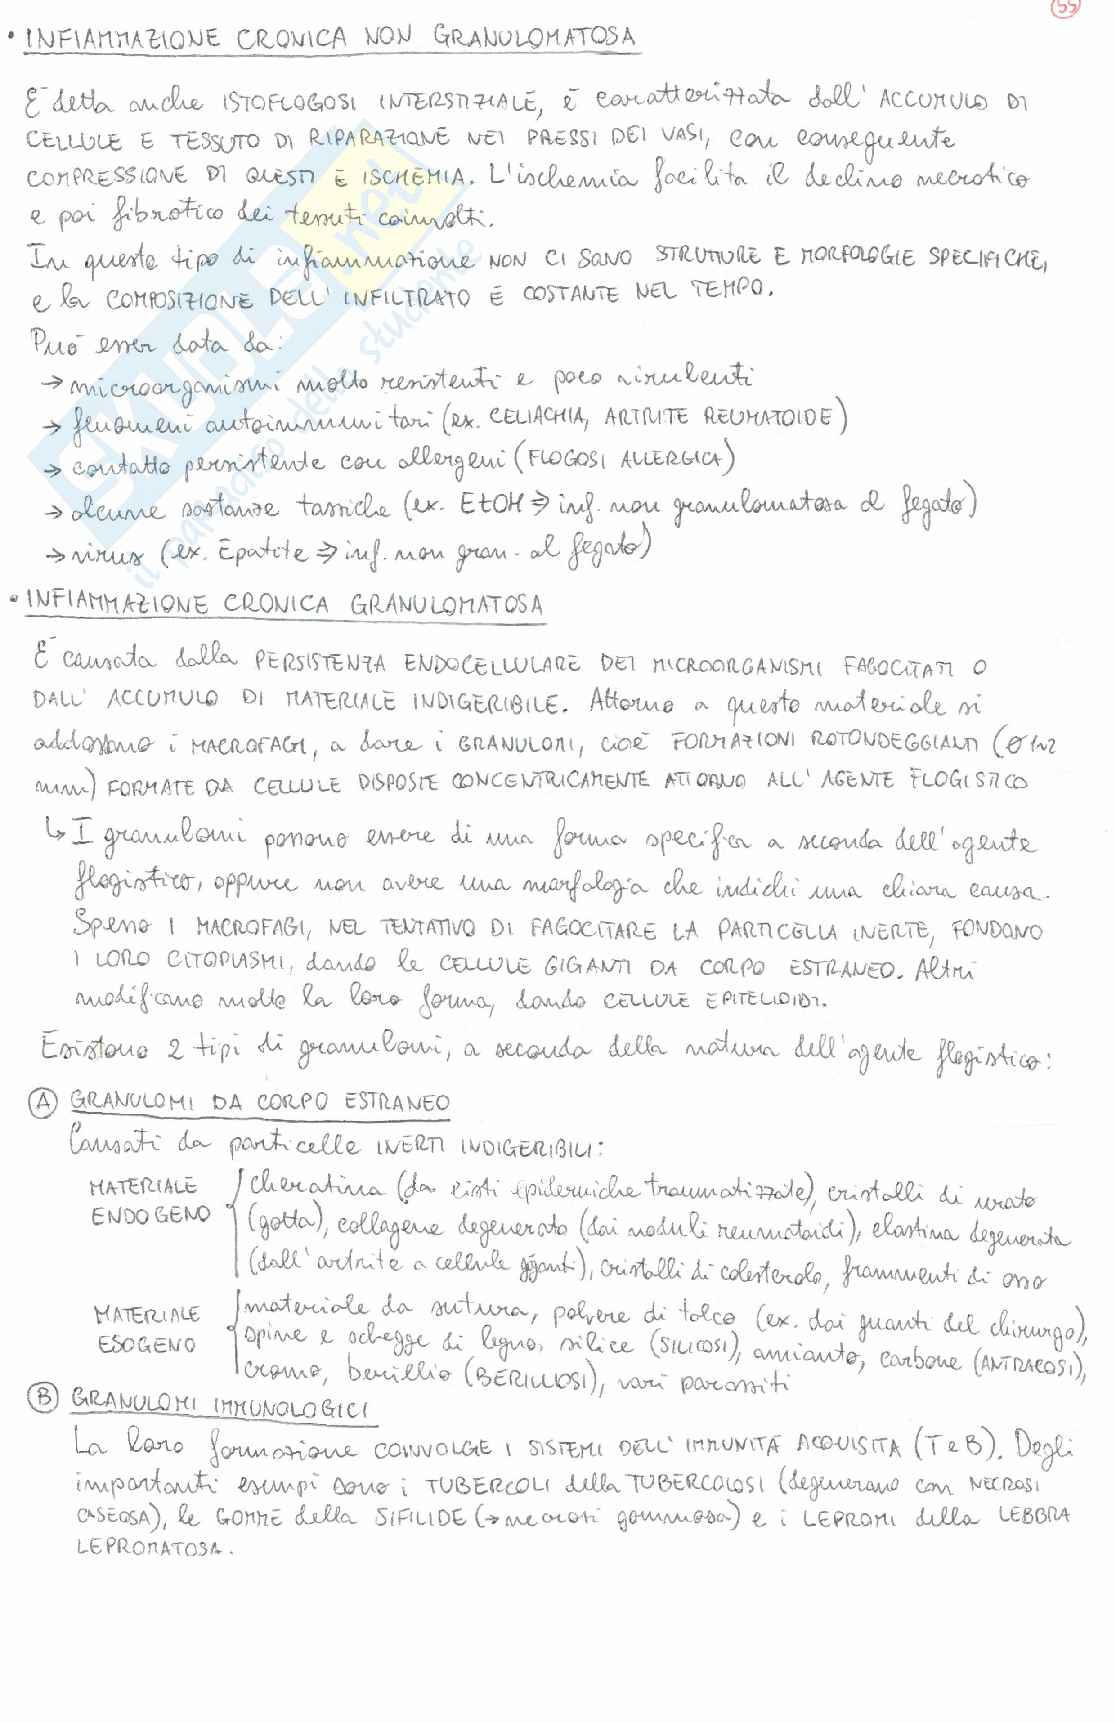 55
• INFIAMMAZIONE CRONICA NON GRANULOMATOSA
È detta anche ISTOFLOGOSI INTERSTIZIALE, è caratterizzata dall' ACCUMULO DI
CELLULE E TESSUTO DI RIPARAZIONE NEI PRESSI DEI VASI, con conseguente
COMPRESSIONE DI QUESTI E ISCHEMIA. L'ischemia facilita il declino necrotico
e poi fibrotico dei tessuti coinvolti.
In questo tipo di infiammazione NON CI SONO STRUTTURE E MORFOLOGIE SPECIFICHE,
e la COMPOSIZIONE DELL' INFILTRATO È COSTANTE NEL TEMPO.
Può esser data da:
→ microorganismi molto resistenti e poco virulenti
→ fenomeni autoimmunitari (ex. CELIACHIA, ARTRITE REUMATOIDE)
→ contatto persistente con allergeni (FLOGOSI ALLERGICA)
→ alcune sostanze tossiche (ex. EtOH ⇒ inf. non granulomatosa al fegato)
→ virus (ex. Epatite ⇒ inf. non gran. al fegato)
SKUOLA.net
il paradiso dello studente
• INFIAMMAZIONE CRONICA GRANULOMATOSA
È causata dalla PERSISTENZA ENDOCELLULARE DEI MICROORGANISMI FAGOCITATI O
DALL' ACCUMULO DI MATERIALE INDIGERIBILE. Attorno a questo materiale si
addossano i MACROFAGI, a dare i GRANULOMI, cioè FORMAZIONI ROTONDEGGIANTI (Ø 1÷2
mm) FORMATE DA CELLULE DISPOSTE CONCENTRICAMENTE ATTORNO ALL' AGENTE FLOGISTICO
↳ I granulomi possono essere di una forma specifica a seconda dell'agente
flogistico, oppure non avere una morfologia che indichi una chiara causa.
Spesso I MACROFAGI, NEL TENTATIVO DI FAGOCITARE LA PARTICELLA INERTE, FONDONO
I LORO CITOPLASMI, dando le CELLULE GIGANTI DA CORPO ESTRANEO. Altri
modificano molto la loro forma, dando CELLULE EPITELIOIDI.
Esistono 2 tipi di granulomi, a seconda della natura dell'agente flogistico:
Ⓐ GRANULOMI DA CORPO ESTRANEO
Causati da particelle INERTI INDIGERIBILI:
MATERIALE ENDOGENO { cheratina (da cisti epidermiche traumatizzate), cristalli di urato
(gotta), collagene degenerato (dai noduli reumatoidi), elastina degenerata
(dall'artrite a cellule giganti), cristalli di colesterolo, frammenti di osso
MATERIALE ESOGENO { materiale da sutura, polvere di talco (ex. dai guanti del chirurgo),
spine e schegge di legno, silice (SILICOSI), amianto, carbone (ANTRACOSI),
cromo, berillio (BERILLIOSI), vari parassiti
Ⓑ GRANULOMI IMMUNOLOGICI
La loro formazione COINVOLGE I SISTEMI DELL' IMMUNITÀ ACQUISITA (T e B). Degli
importanti esempi sono i TUBERCOLI della TUBERCOLOSI (degenerano con NECROSI
CASEOSA), le GOMME della SIFILIDE (→ necrosi gommosa) e i LEPROMI della LEBBRA
LEPROMATOSA.